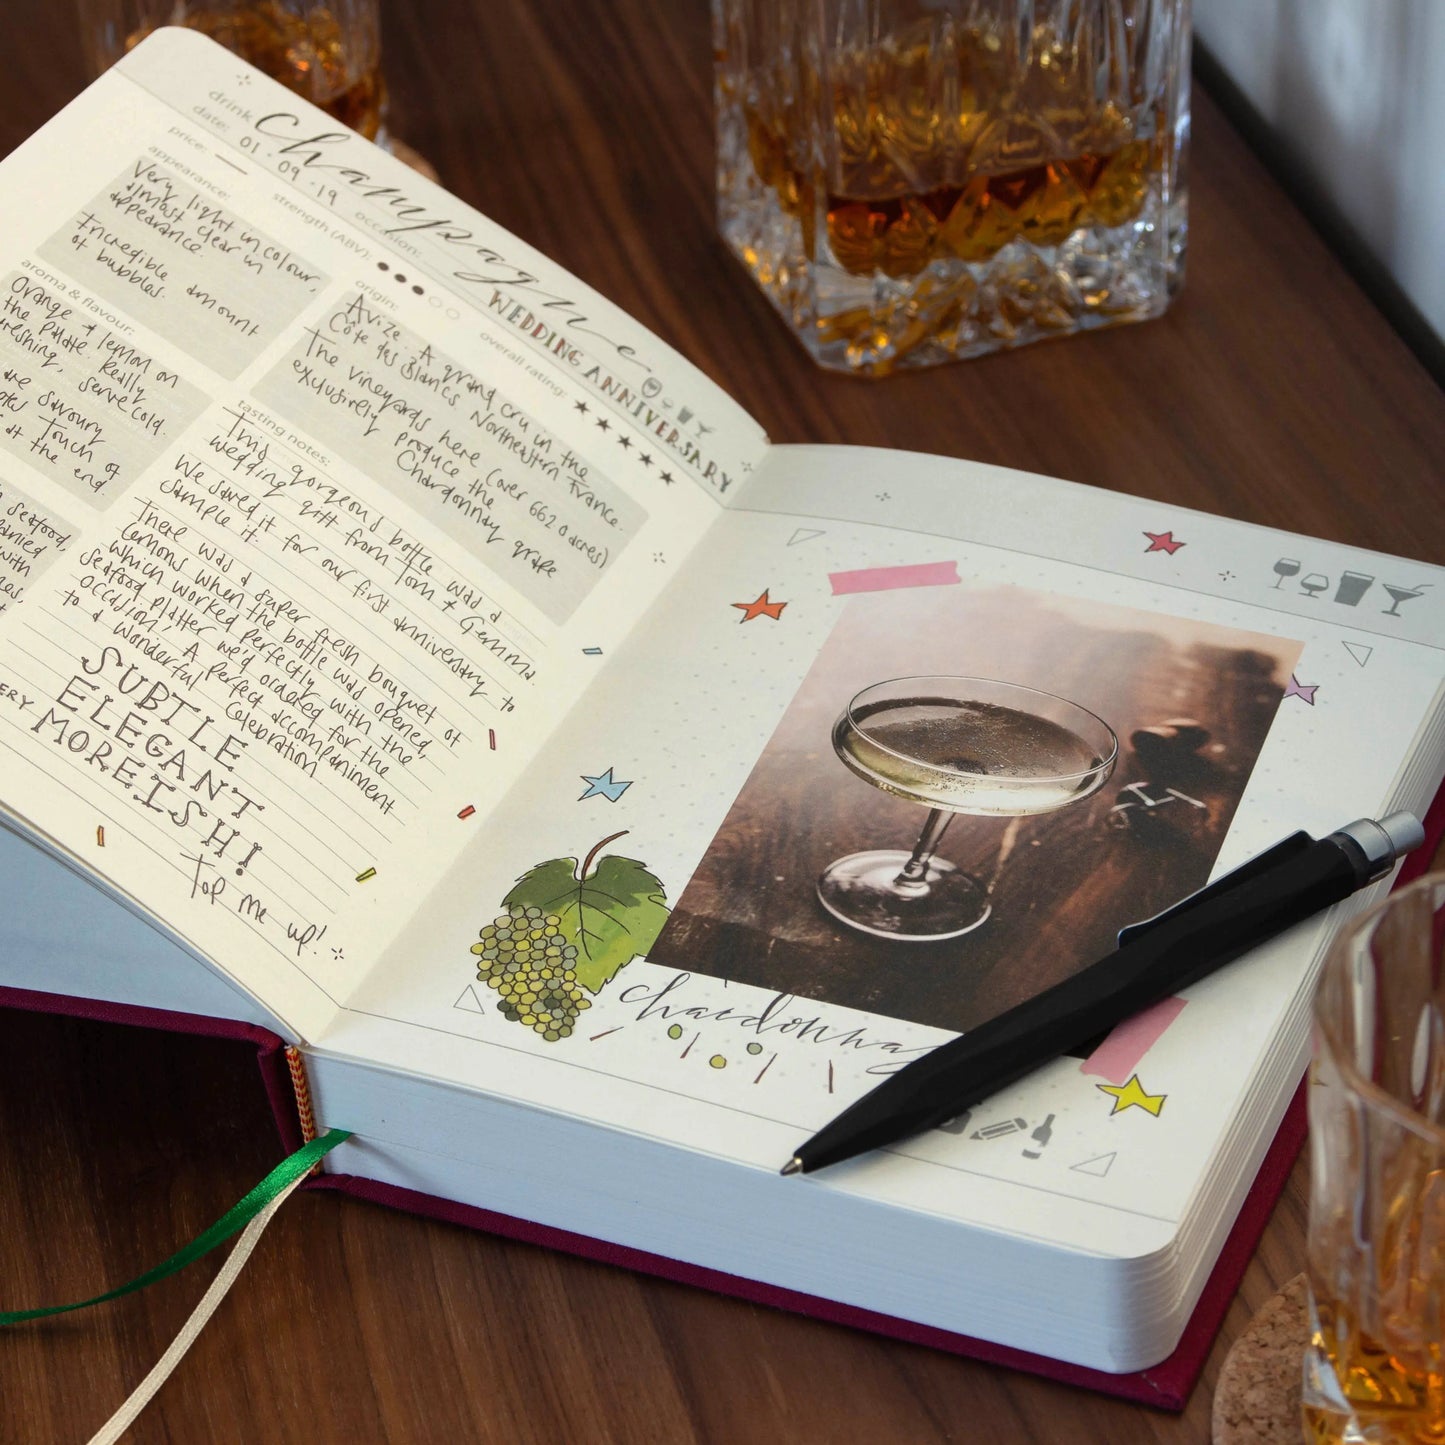 drink: Champagne
date: 01.09.19
occasion: WEDDING ANNIVERSARY
price:
strength (ABV):
overall rating:
appearance:
Very light in colour,
almost clear in
appearance.
Incredible amount
of bubbles.
origin:
Avize. A grand cru in the
Côte des Blancs. Northeastern France.
The vineyards here (over 662 acres)
exclusively produce the
Chardonnay grape
aroma & flavour:
Orange + lemon on
the palate. Really
serve cold.
are savoury
touch of
at the end.
seafood,
with
tasting notes:
This gorgeous bottle was a
wedding gift from Tom + Gemma.
We saved it for our first anniversary to
sample it.
There was a super fresh bouquet of
lemons when the bottle was opened,
which worked perfectly with the
seafood platter we'd ordered for the
occasion, A perfect accompaniment
to a wonderful celebration
SUBTLE
ELEGANT
MOREISH!
Top me up!
chardonnay